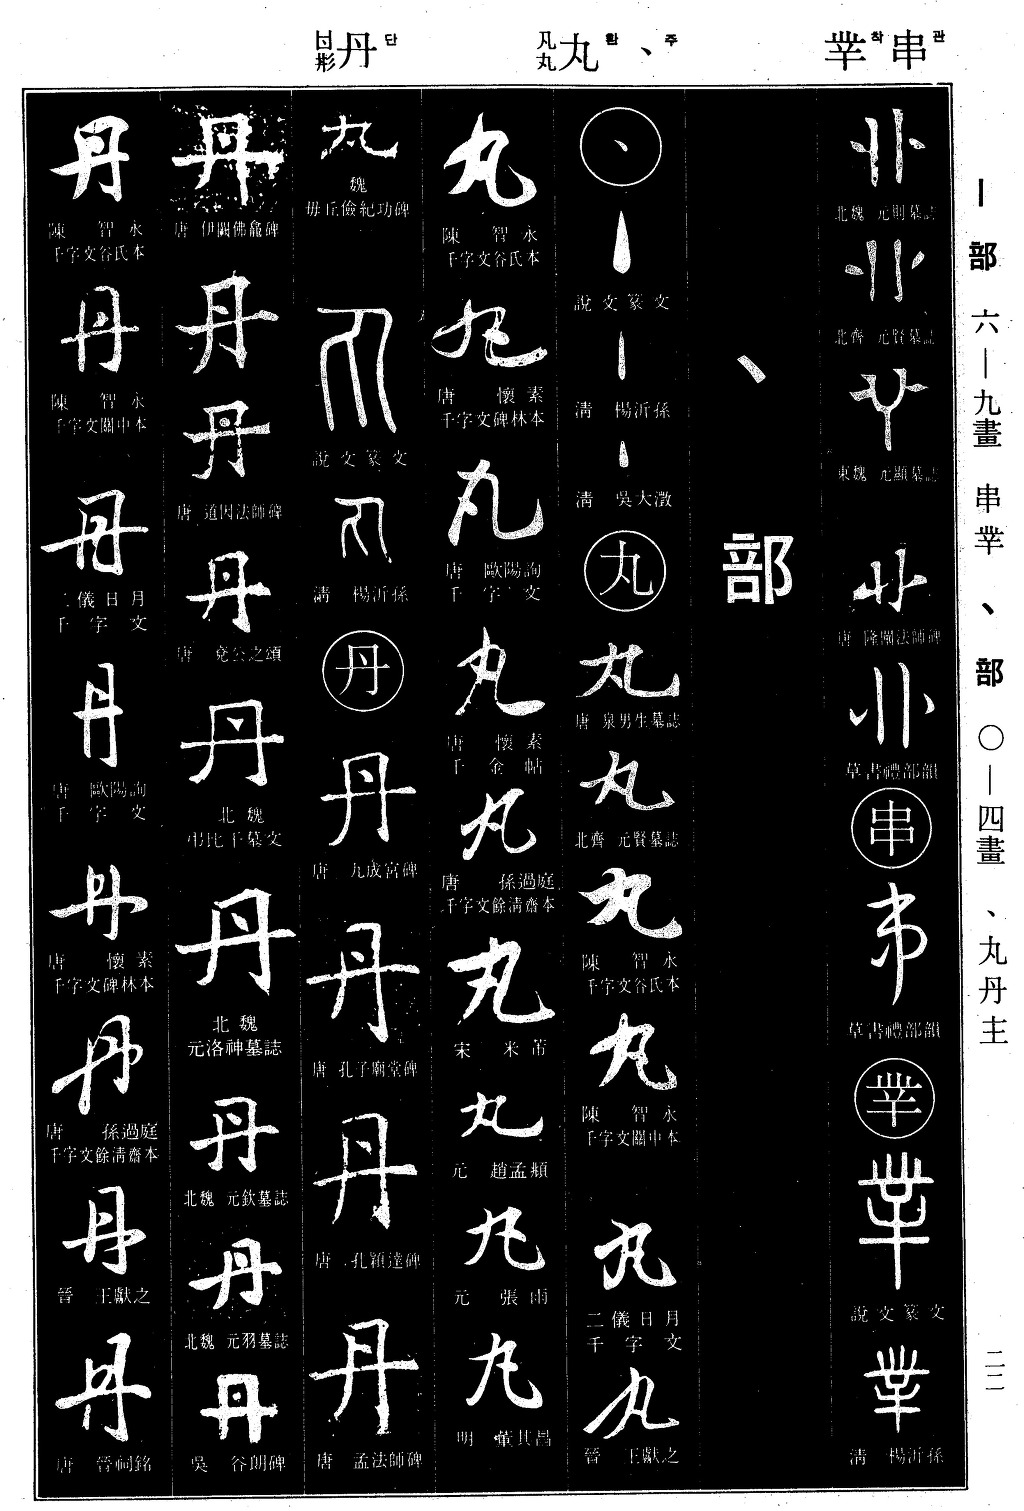 串관
丵착
丶주
丸환
凡丸
丹단
日彤
丨部 六—九畫 串丵 丶部 〇—四畫 丶丸丹主
二二
北魏 元則墓誌
北齊 元賢墓誌
東魏 元顯墓誌
唐 隆闡法師碑
草書禮部韻
串
草書禮部韻
丵
說文篆文
清 楊沂孫
丶部
丶
說文篆文
清 楊沂孫
清 吳大澂
丸
唐 泉男生墓誌
北齊 元賢墓誌
陳 智永
千字文谷氏本
陳 智永
千字文關中本
二儀日月
千字文
晉 王獻之
丸
陳 智永
千字文谷氏本
唐 懷素
千字文碑林本
唐 歐陽詢
千字文
唐 懷素
千金帖
唐 孫過庭
千字文餘清齋本
宋 米芾
元 趙孟頫
元 張雨
明 董其昌
魏
毋丘儉紀功碑
說文篆文
清 楊沂孫
丹
唐 九成宮碑
唐 孔子廟堂碑
唐 孔穎達碑
唐 孟法師碑
丹
唐 伊闕佛龕碑
丹
唐 道因法師碑
唐 兗公之頌
北魏
弔比干墓文
北魏
元洛神墓誌
北魏 元欽墓誌
北魏 元羽墓誌
吳 谷朗碑
丹
陳 智永
千字文谷氏本
陳 智永
千字文關中本
二儀日月
千字文
唐 歐陽詢
千字文
唐 懷素
千字文碑林本
唐 孫過庭
千字文餘清齋本
晉 王獻之
唐 管祠銘